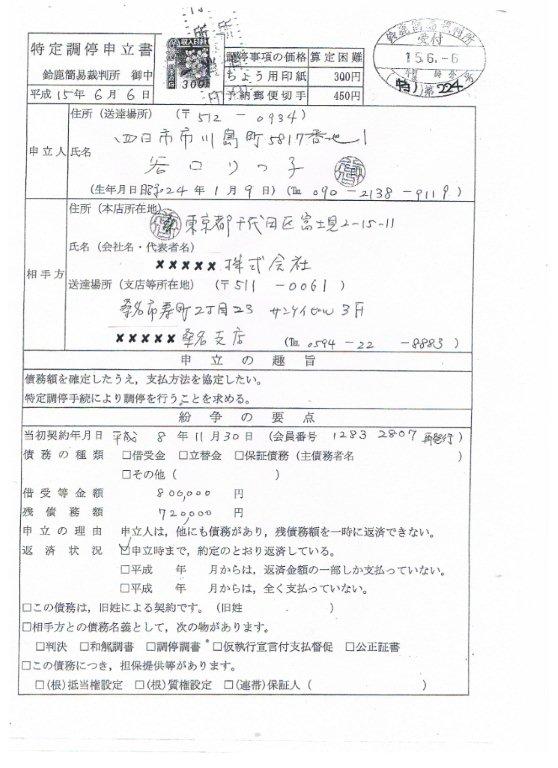 特定調停申立書
鈴鹿簡易裁判所 御中
平成15年6月6日
300
調停事項の価格 算定困難
ちょう用印紙 300円
予納郵便切手 450円
鈴鹿簡易裁判所
受付
15.6.-6
(特)第224号
申立人
住所（送達場所） （〒512-0934）
四日市市川島町5817番地1
氏名
谷口りつ子
（生年月日昭和24年1月9日）（℡ 090-2138-9119）
相手方
住所（本店所在地）
東京都千代田区富士見2-15-11
氏名（会社名・代表者名）
×××××株式会社
送達場所（支店等所在地）（〒511-0061）
桑名市寿町2丁目23 サンケイビル3F
×××××桑名支店 （℡ 0594-22-8883）
申立の趣旨
債務額を確定したうえ，支払方法を協定したい。
特定調停手続により調停を行うことを求める。
紛争の要点
当初契約年月日 平成8年11月30日（会員番号 1283 2807 再発行）
債務の種類 □借受金 □立替金 □保証債務（主債務者名 ）
□その他（ ）
借受等金額 800,000 円
残債務額 720,000 円
申立の理由 申立人は，他にも債務があり，残債務額を一時に返済できない。
返済状況 ☑申立時まで，約定のとおり返済している。
□平成 年 月からは，返済金額の一部しか支払っていない。
□平成 年 月からは，全く支払っていない。
□この債務は，旧姓による契約です。（旧姓 ）
□相手方との債務名義として，次の物があります。
□判決 □和解調書 □調停調書 □仮執行宣言付支払督促 □公正証書
□この債務につき，担保提供等があります。
□(根)抵当権設定 □(根)質権設定 □(連帯)保証人（ ）